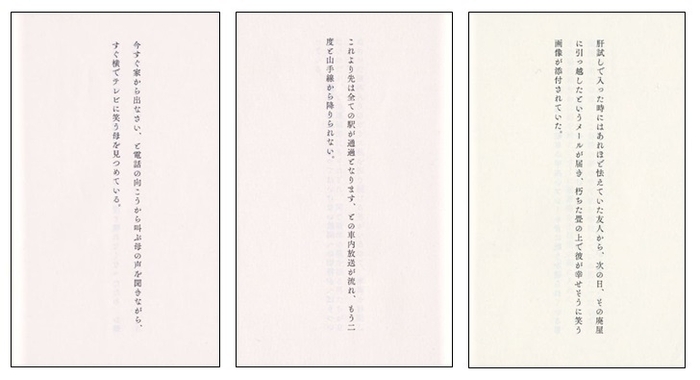 今すぐ家から出なさい、と電話の向こうから叫ぶ母の声を聞きながら、
すぐ横でテレビに笑う母を見つめている。
これより先は全ての駅が通過となります、との車内放送が流れ、もう二
度と山手線から降りられない。
肝試しで入った時にはあれほど怯えていた友人から、次の日、その廃屋
に引っ越したというメールが届き、朽ちた畳の上で彼が幸せそうに笑う
画像が添付されていた。